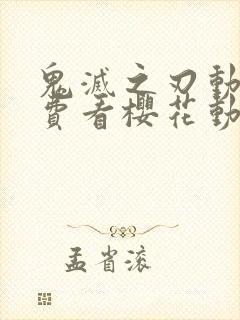 鬼滅之刃動
費看櫻花動
孟省滚